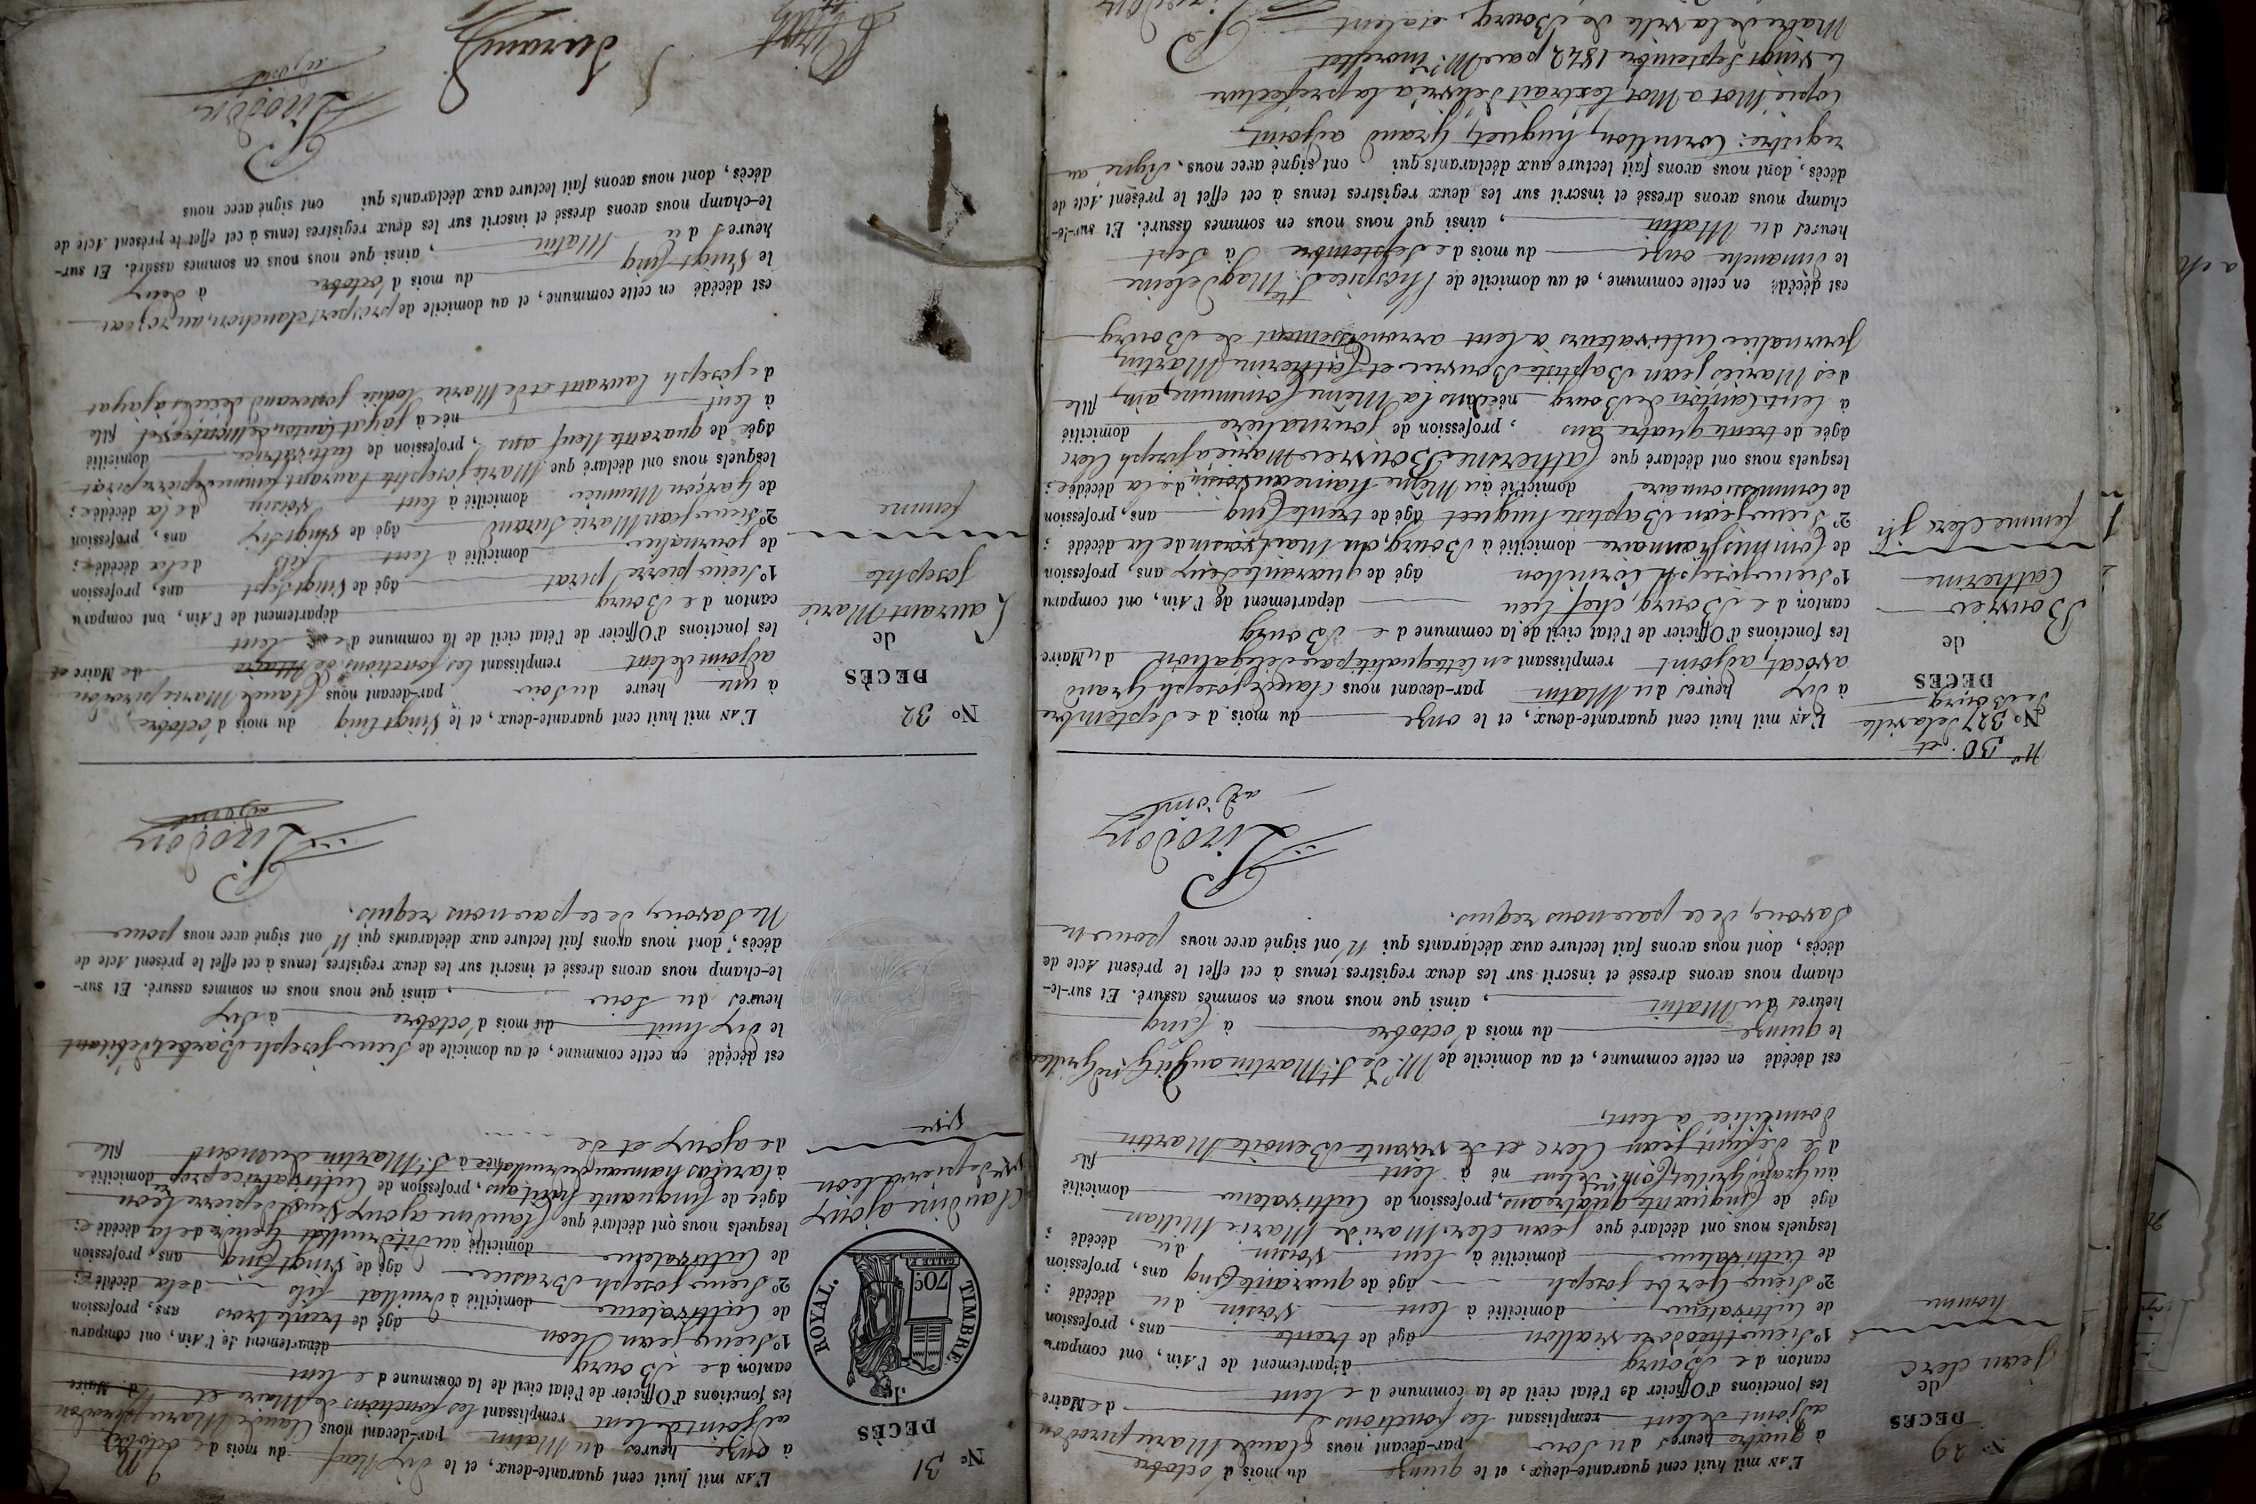 N° 29
DECÈS
de
jean clerc
homme
L'AN mil huit cent quarante-deux, et le quinze du mois d octobre
à quatre heures du soir par-devant nous Claude Marie pirodon
adjoint de lent remplissant les fonctions de Maire
les fonctions d'Officier de l'état civil de la commune d e lent
canton d e Bourg département de l'Ain, ont comparu
1° Sieur théodore vialion âgé de trente ans, profession
de Cultivateur domicilié à lent voisin du décédé ;
2° Sieur joseph âgé de quarante cinq ans, profession
de Cultivateur domicilié à lent voisin du décédé ;
lesquels nous ont déclaré que jean clerc Mari de Marie
âgé de cinquante quatre ans, profession de Cultivateur domicilié
né à lent fils
de défunt jean Clerc et de vivante Benoite Martin
domiciliée à lent,
est décédé en cette commune, et au domicile de Mr de St Martin au
le quinze du mois d octobre à cinq
heures du Matin, ainsi que nous nous en sommes assuré. Et sur-le-
champ nous avons dressé et inscrit sur les deux registres tenus à cet effet le présent Acte de
décès, dont nous avons fait lecture aux déclarants qui n'ont signé avec nous pour ne
Savoir, de ce par nous requis.
Pirodon
adjoint
n° 30 et
N° 327 de la ville
de Bourg
DECÈS
de
Bouvier
Catherine
femme Clerc jh
L'AN mil huit cent quarante-deux, et le onze du mois d e Septembre
à dix heures du Matin par-devant nous Claude joseph Grand
avocat, adjoint remplissant en cette qualité par délégation du Maire
les fonctions d'Officier de l'état civil de la commune d e Bourg
canton d e Bourg, chef lieu département de l'Ain, ont comparu
1° Sieur joseph Cornillon âgé de quarante deux ans, profession
de Commissionnaire domicilié à Bourg, au Mail, voisin de la décédé ;
2° Sieur jean Baptiste huguet âgé de trente cinq ans, profession
de Commissionnaire domicilié au Même hameau voisin de la décédée ;
lesquels nous ont déclaré que Catherine Bouvier Mariée à joseph Clerc
âgée de trente quatre ans, profession de journalière domicilié
à lent Canton de Bourg née dans la Même Commune, ain, fille
des Mariés jean Baptiste Bouvier et Catherine Martin,
journalier Cultivateurs à lent arrondissement de Bourg
est décédé en cette commune, et au domicile de l'hospice Ste Magdeleine
le dimanche onze du mois d e Septembre à Sept
heures du Matin, ainsi que nous nous en sommes assuré. Et sur-le-
champ nous avons dressé et inscrit sur les deux registres tenus à cet effet le présent Acte de
décès, dont nous avons fait lecture aux déclarants qui ont signé avec nous. Signé au
registre: Cornillon, huguet, Grand adjoint,
Copié Mot a Mot, l'extrait délivré à la préfecture
le vingt Septembre 1842 par Mr morellet
Maire de la ville de Bourg, etalent
N° 31
DECÈS
TIMBRE ROYAL.
70c
Claudine ajoux
vve de pierre leon
vve
L'AN mil huit cent quarante-deux, et le dix Neuf du mois de octobre
à onze heures du Matin par-devant nous Claude Marie pirodon
adjoint de lent remplissant les fonctions de Maire et
les fonctions d'Officier de l'état civil de la commune d e lent
canton d e Bourg département de l'Ain, ont comparu
1° Sieur jean Léon âgé de trente trois ans, profession
de Cultivateur domicilié à druillat fils de la décédée ;
2° Sieur joseph Brasier âgé de vingt cinq ans, profession
de Cultivateur domicilié au dit druillat Gendre de la décédée ;
lesquels nous ont déclaré que Claudine ajoux Veuve de pierre Léon
âgée de cinquante huit ans, profession de Cultivatrice domiciliée
à hameau de druillat née à St Martin du mont fille
de ajoux et de
est décédé en cette commune, et au domicile de Sieur joseph Barbet débitant
le dix huit du mois d'octobre à dix
heures du soir, ainsi que nous nous en sommes assuré. Et sur-
le-champ nous avons dressé et inscrit sur les deux registres tenus à cet effet le présent Acte de
décès, dont nous avons fait lecture aux déclarants qui n ont signé avec nous pour
Ne Savoir, de ce par nous requis.
Pirodon
adjoint
N° 32
DECÈS
de
Laurant Marie
josephte
femme
L'AN mil huit cent quarante-deux, et le Vingt Cinq du mois d'octobre
à une heure du Soir par-devant nous Claude Marie pirodon
adjoint de lent remplissant les fonctions de Maire et
les fonctions d'Officier de l'état civil de la commune d e lent
canton d e Bourg département de l'Ain, ont comparu
1° Sieur pierre pirat âgé de Vingt Sept ans, profession
de journalier domicilié à lent fils de la décédée ;
2° Sieur jean Marie Durand âgé de Vingt Six ans, profession
de Garçon Meunier domicilié à lent voisin de la décédée ;
lesquels nous ont déclaré que Marie josephte Laurant femme de pierre pirat
âgée de quarante Neuf ans, profession de Cultivatrice domicilié
à lent née à jayat Canton de Montrevel fille
de joseph Laurant et de Marie Claudine décédés à jayat
est décédé en cette commune, et au domicile de prospert
le Vingt Cinq du mois d'octobre à deux
heures du Matin, ainsi que nous nous en sommes assuré. Et sur-
le-champ nous avons dressé et inscrit sur les deux registres tenus à cet effet le présent Acte de
décès, dont nous avons fait lecture aux déclarants qui ont signé avec nous
Pirodon
adjoint
durand
Pirat